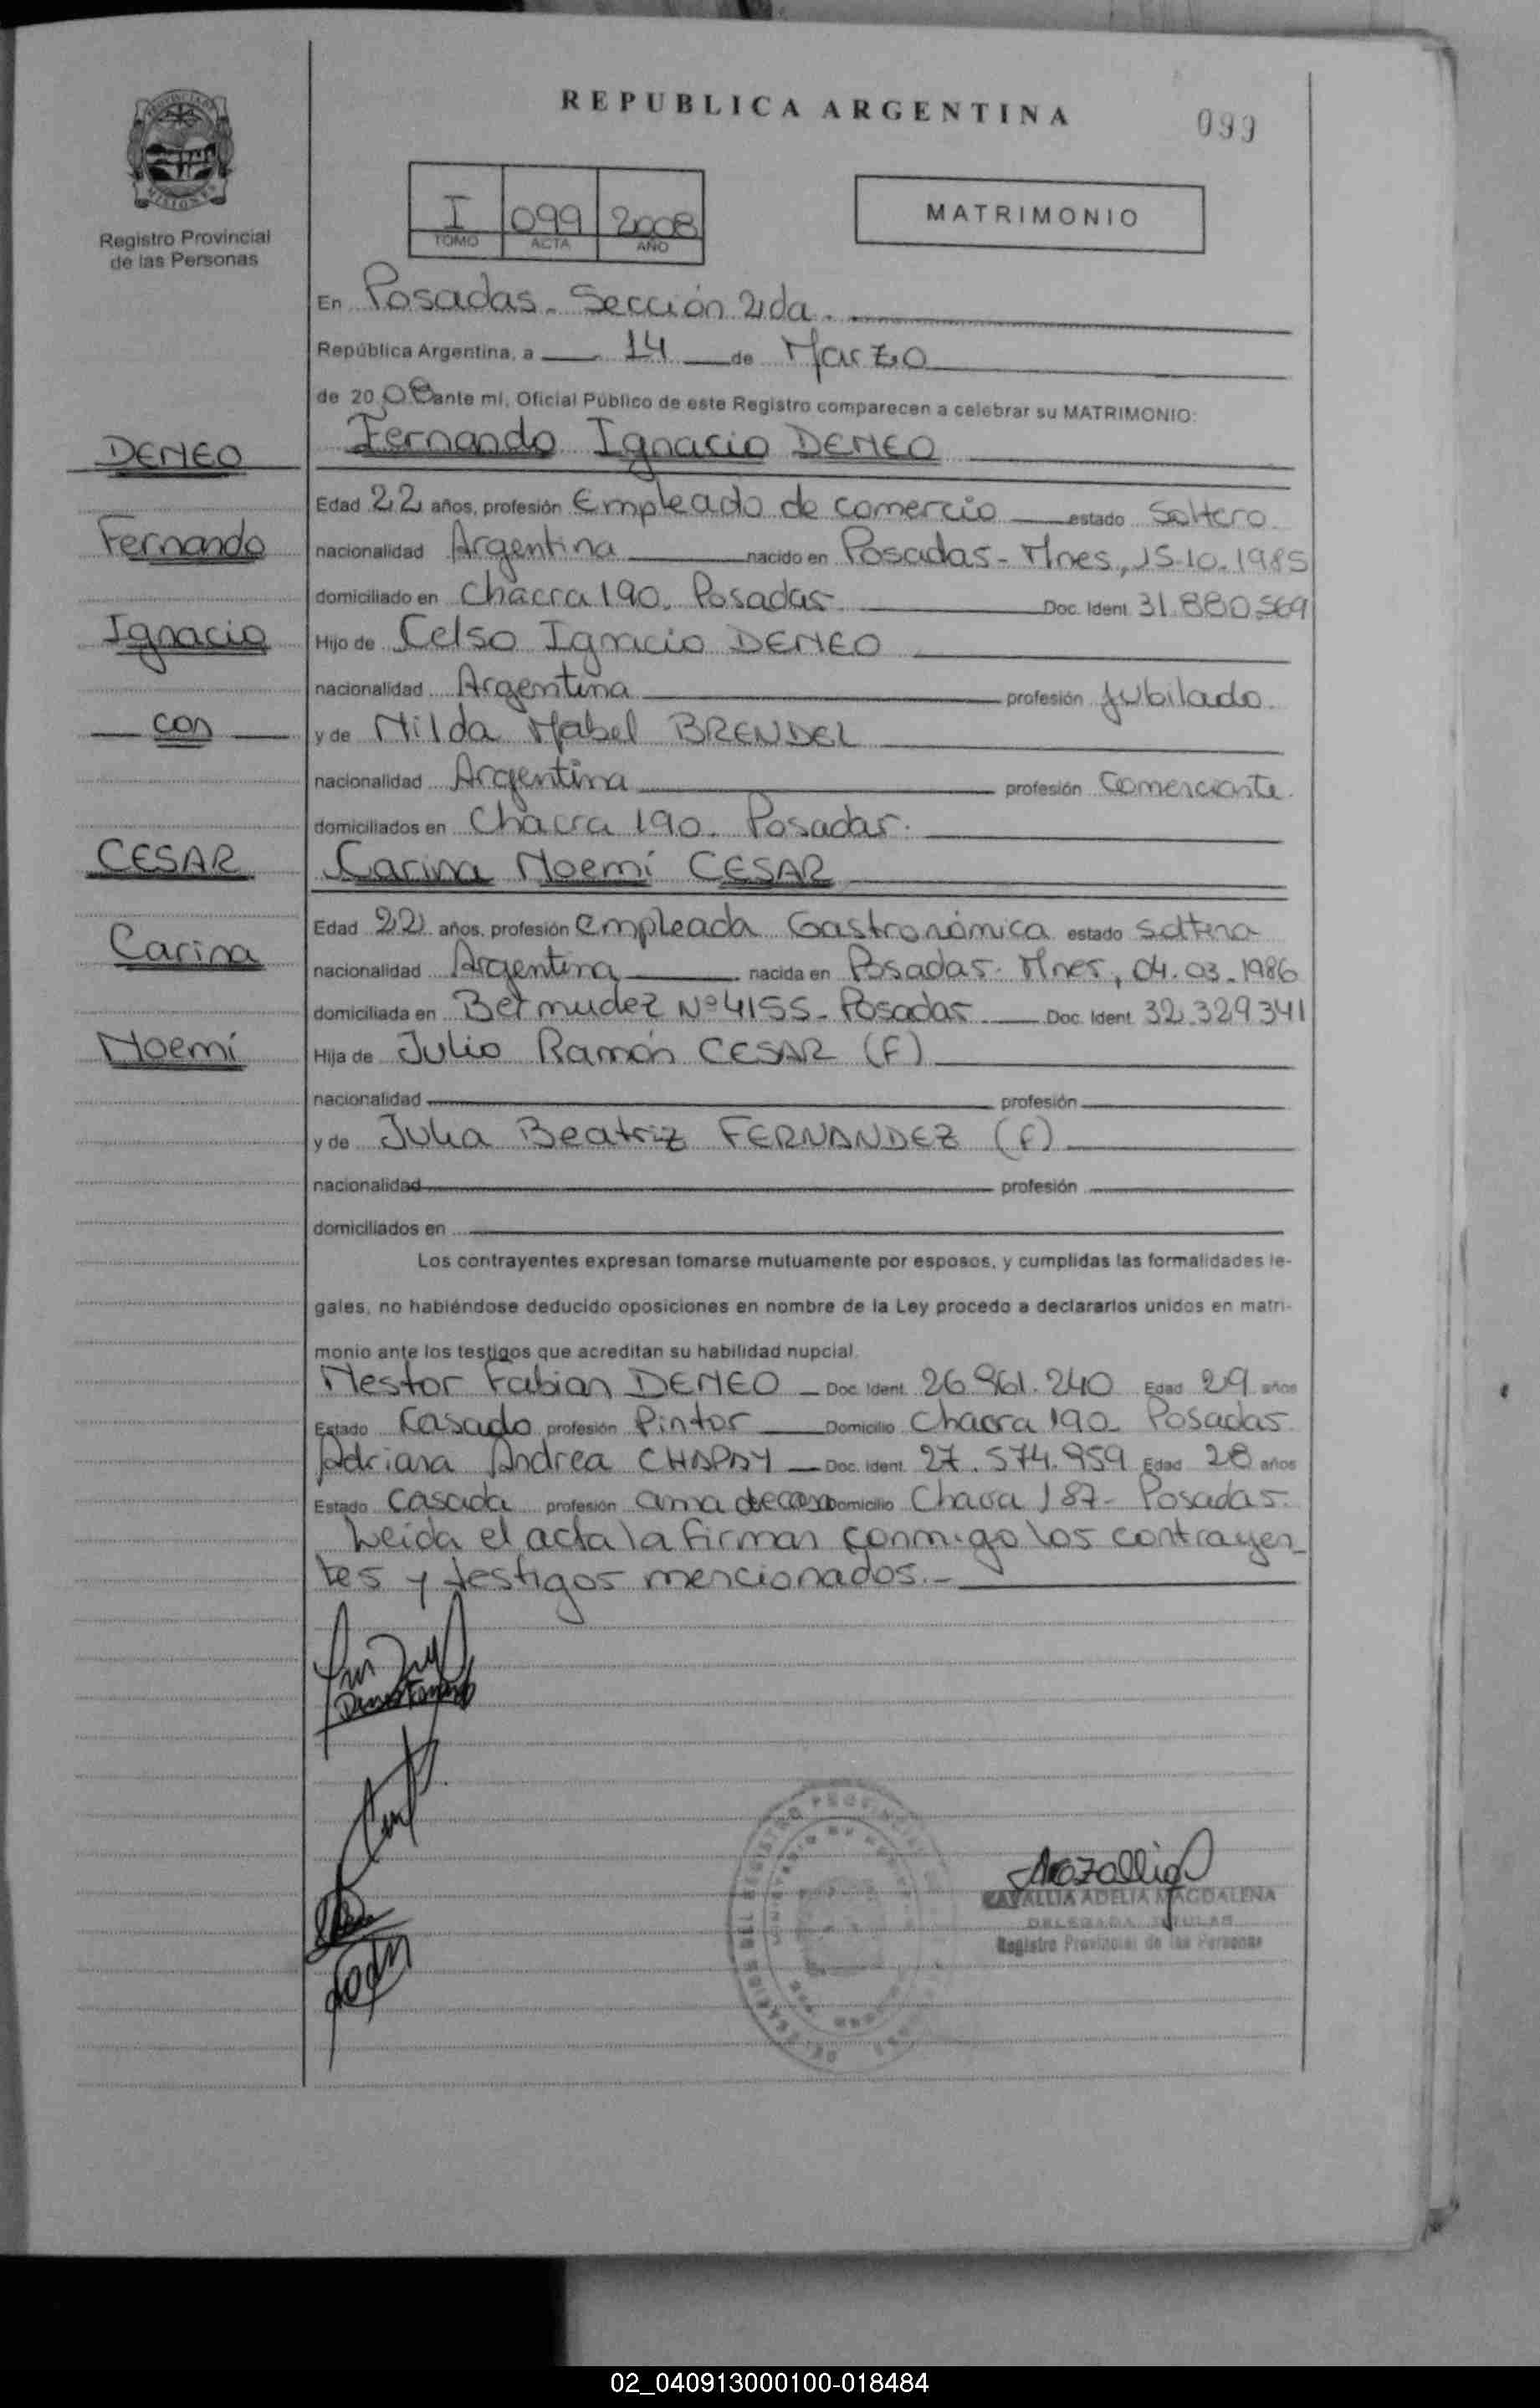 REPUBLICA ARGENTINA
099
Registro Provincial
de las Personas
I 099 2008
TOMO ACTA AÑO
MATRIMONIO
En Posadas - Sección 2da.
República Argentina, a 14 de Marzo
de 2008 ante mí, Oficial Público de este Registro comparecen a celebrar su MATRIMONIO:
DEMEO
Fernando
Ignacio
con
CESAR
Carina
Noemí
Fernando Ignacio DEMEO
Edad 22 años, profesión Empleado de comercio estado Soltero.
nacionalidad Argentina nacido en Posadas - Mnes, 15.10.1985
domiciliado en Chacra 190. Posadas Doc. Ident. 31.880.569
Hijo de Celso Ignacio DEMEO
nacionalidad Argentina profesión Jubilado.
y de Nilda Mabel BRENDEL
nacionalidad Argentina profesión Comerciante.
domiciliados en Chacra 190. Posadas.
Carina Noemí CESAR
Edad 22 años, profesión Empleada Gastronómica estado Soltera
nacionalidad Argentina nacida en Posadas - Mnes, 04.03.1986
domiciliada en Bermudez Nº 4155 - Posadas Doc. Ident. 32.329341
Hija de Julio Ramón CESAR (F)
nacionalidad profesión
y de Julia Beatriz FERNANDEZ (F)
nacionalidad profesión
domiciliados en
Los contrayentes expresan tomarse mutuamente por esposos, y cumplidas las formalidades le-
gales, no habiéndose deducido oposiciones en nombre de la Ley procedo a declararlos unidos en matri-
monio ante los testigos que acreditan su habilidad nupcial.
Nestor Fabian DEMEO Doc. Ident. 26.961.240 Edad 29 años
Estado Casado profesión Pintor Domicilio Chacra 190 - Posadas.
Adriana Andrea CHAPAY Doc. Ident. 27.574.959 Edad 28 años
Estado Casada profesión ama de casa Domicilio Chacra 187 - Posadas.
Leida el acta la firman conmigo los contrayen-
tes y testigos mencionados.-
CAVALLIA ADELIA MAGDALENA
DELEGADA TITULAR
Registro Provincial de las Personas
02_040913000100-018484